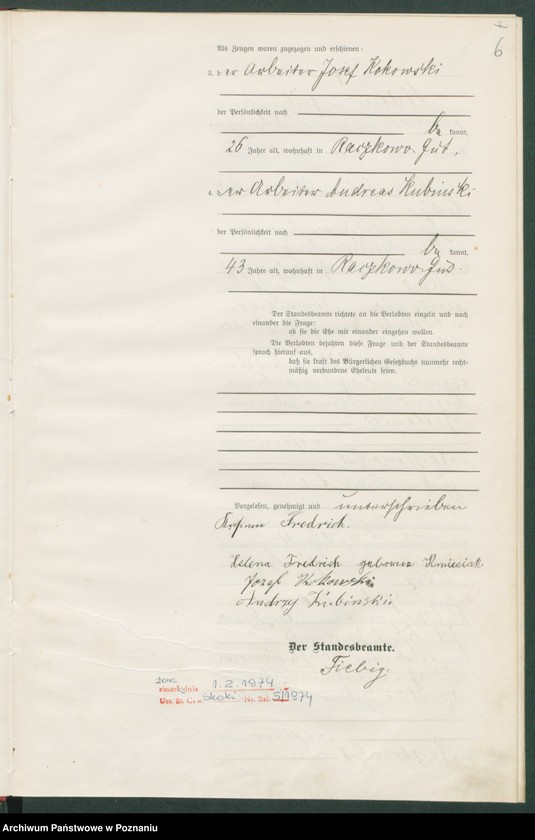 6
Als Zeugen waren zugezogen und erschienen:
3. der Arbeiter Josef Kokowski
der Persönlichkeit nach
be kannt,
26 Jahre alt, wohnhaft in Raczkowo Gut.
4. der Arbeiter Andreas Kubinski
der Persönlichkeit nach
be kannt,
43 Jahre alt, wohnhaft in Raczkowo Gut.
Der Standesbeamte richtete an die Verlobten einzeln und nach
einander die Frage:
ob sie die Ehe mit einander eingehen wollen.
Die Verlobten bejahten diese Frage und der Standesbeamte
sprach hierauf aus,
daß sie kraft des Bürgerlichen Gesetzbuchs nunmehr recht-
mäßig verbundene Eheleute seien.
Vorgelesen, genehmigt und unterschrieben
Fredrich.
Helena Fredrich geborene Kmieciak
Jozef Kokowski
Andrzej Kubinski
Der Standesbeamte.
Fiebig.
żona
zmarł
1.2.1974
Urz. St. Cyw. Skoki Nr. Akt. 5/1974
Archiwum Państwowe w Poznaniu